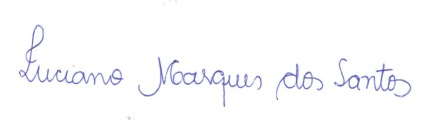 Luciano Marques dos Santos